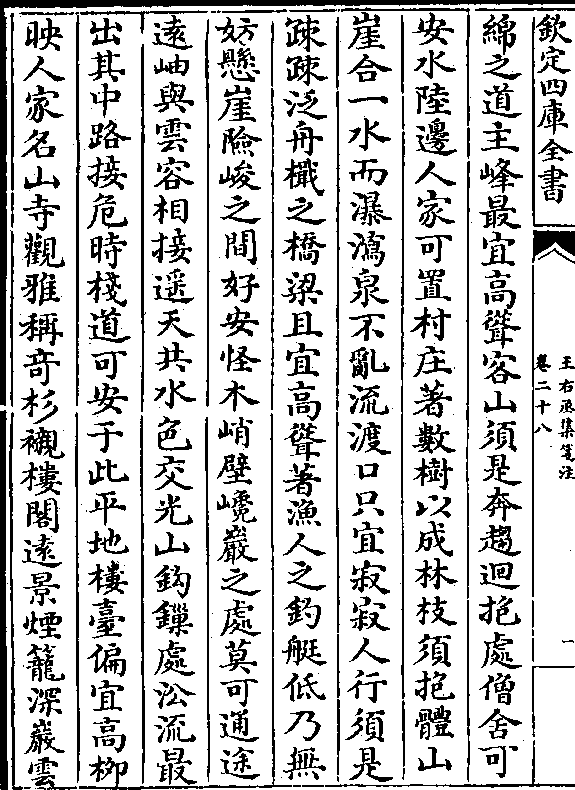 欽定四庫全書
王右丞集箋注
卷二十八
一
綿之道主峰最宜高聳客山須是奔趨迴抱處僧舍可
安水陸邊人家可置村庄著數樹以成林枝須抱體山
崖合一水而瀑瀉泉不亂流渡口只宜寂寂人行須是
疎疎泛舟檝之橋梁且宜高聳著漁人之釣艇低乃無
妨懸崖險峻之間好安怪木峭壁巉巖之處莫可通途
遠岫與雲容相接遥天共水色交光山鈎鏁處沿流最
出其中路接危時棧道可安于此平地樓臺偏宜高柳
映人家名山寺觀雅稱奇杉襯樓閣遠景煙籠深巖雲